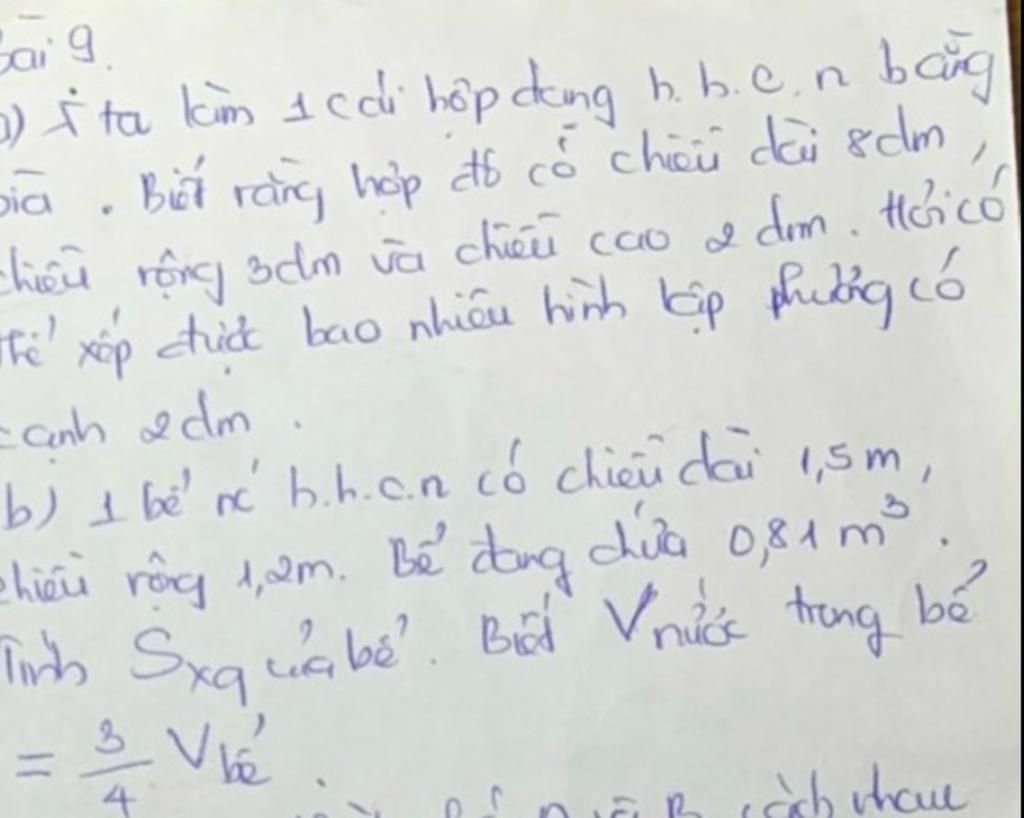 Bài 9.
a) N ta làm 1 cái hộp dạng h.h.c.n bằng
bìa. Biết rằng hộp đó có chiều dài 8dm,
chiều rộng 3dm và chiều cao 2dm. Hỏi có
thể xếp được bao nhiêu hình lập phương có
cạnh 2dm.
b) 1 bể nc h.h.c.n có chiều dài 1,5m,
chiều rộng 1,2m. Bể đang chứa 0,81m³.
Tính Sxq của bể. Biết Vnước trong bể
= 3/4 Vbể.
cách nhau